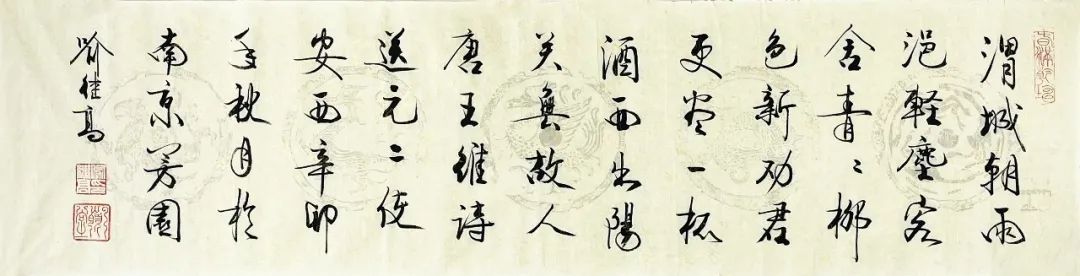 渭城朝雨
浥軽塵客
舍青〻柳
色新劝君
更尽一杯
酒西出陽
关無故人
唐王維诗
送元二使
安西辛卯
年秋月於
南京芳園
喻継高